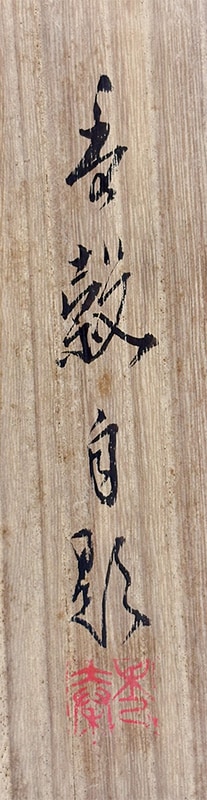 香穀自題